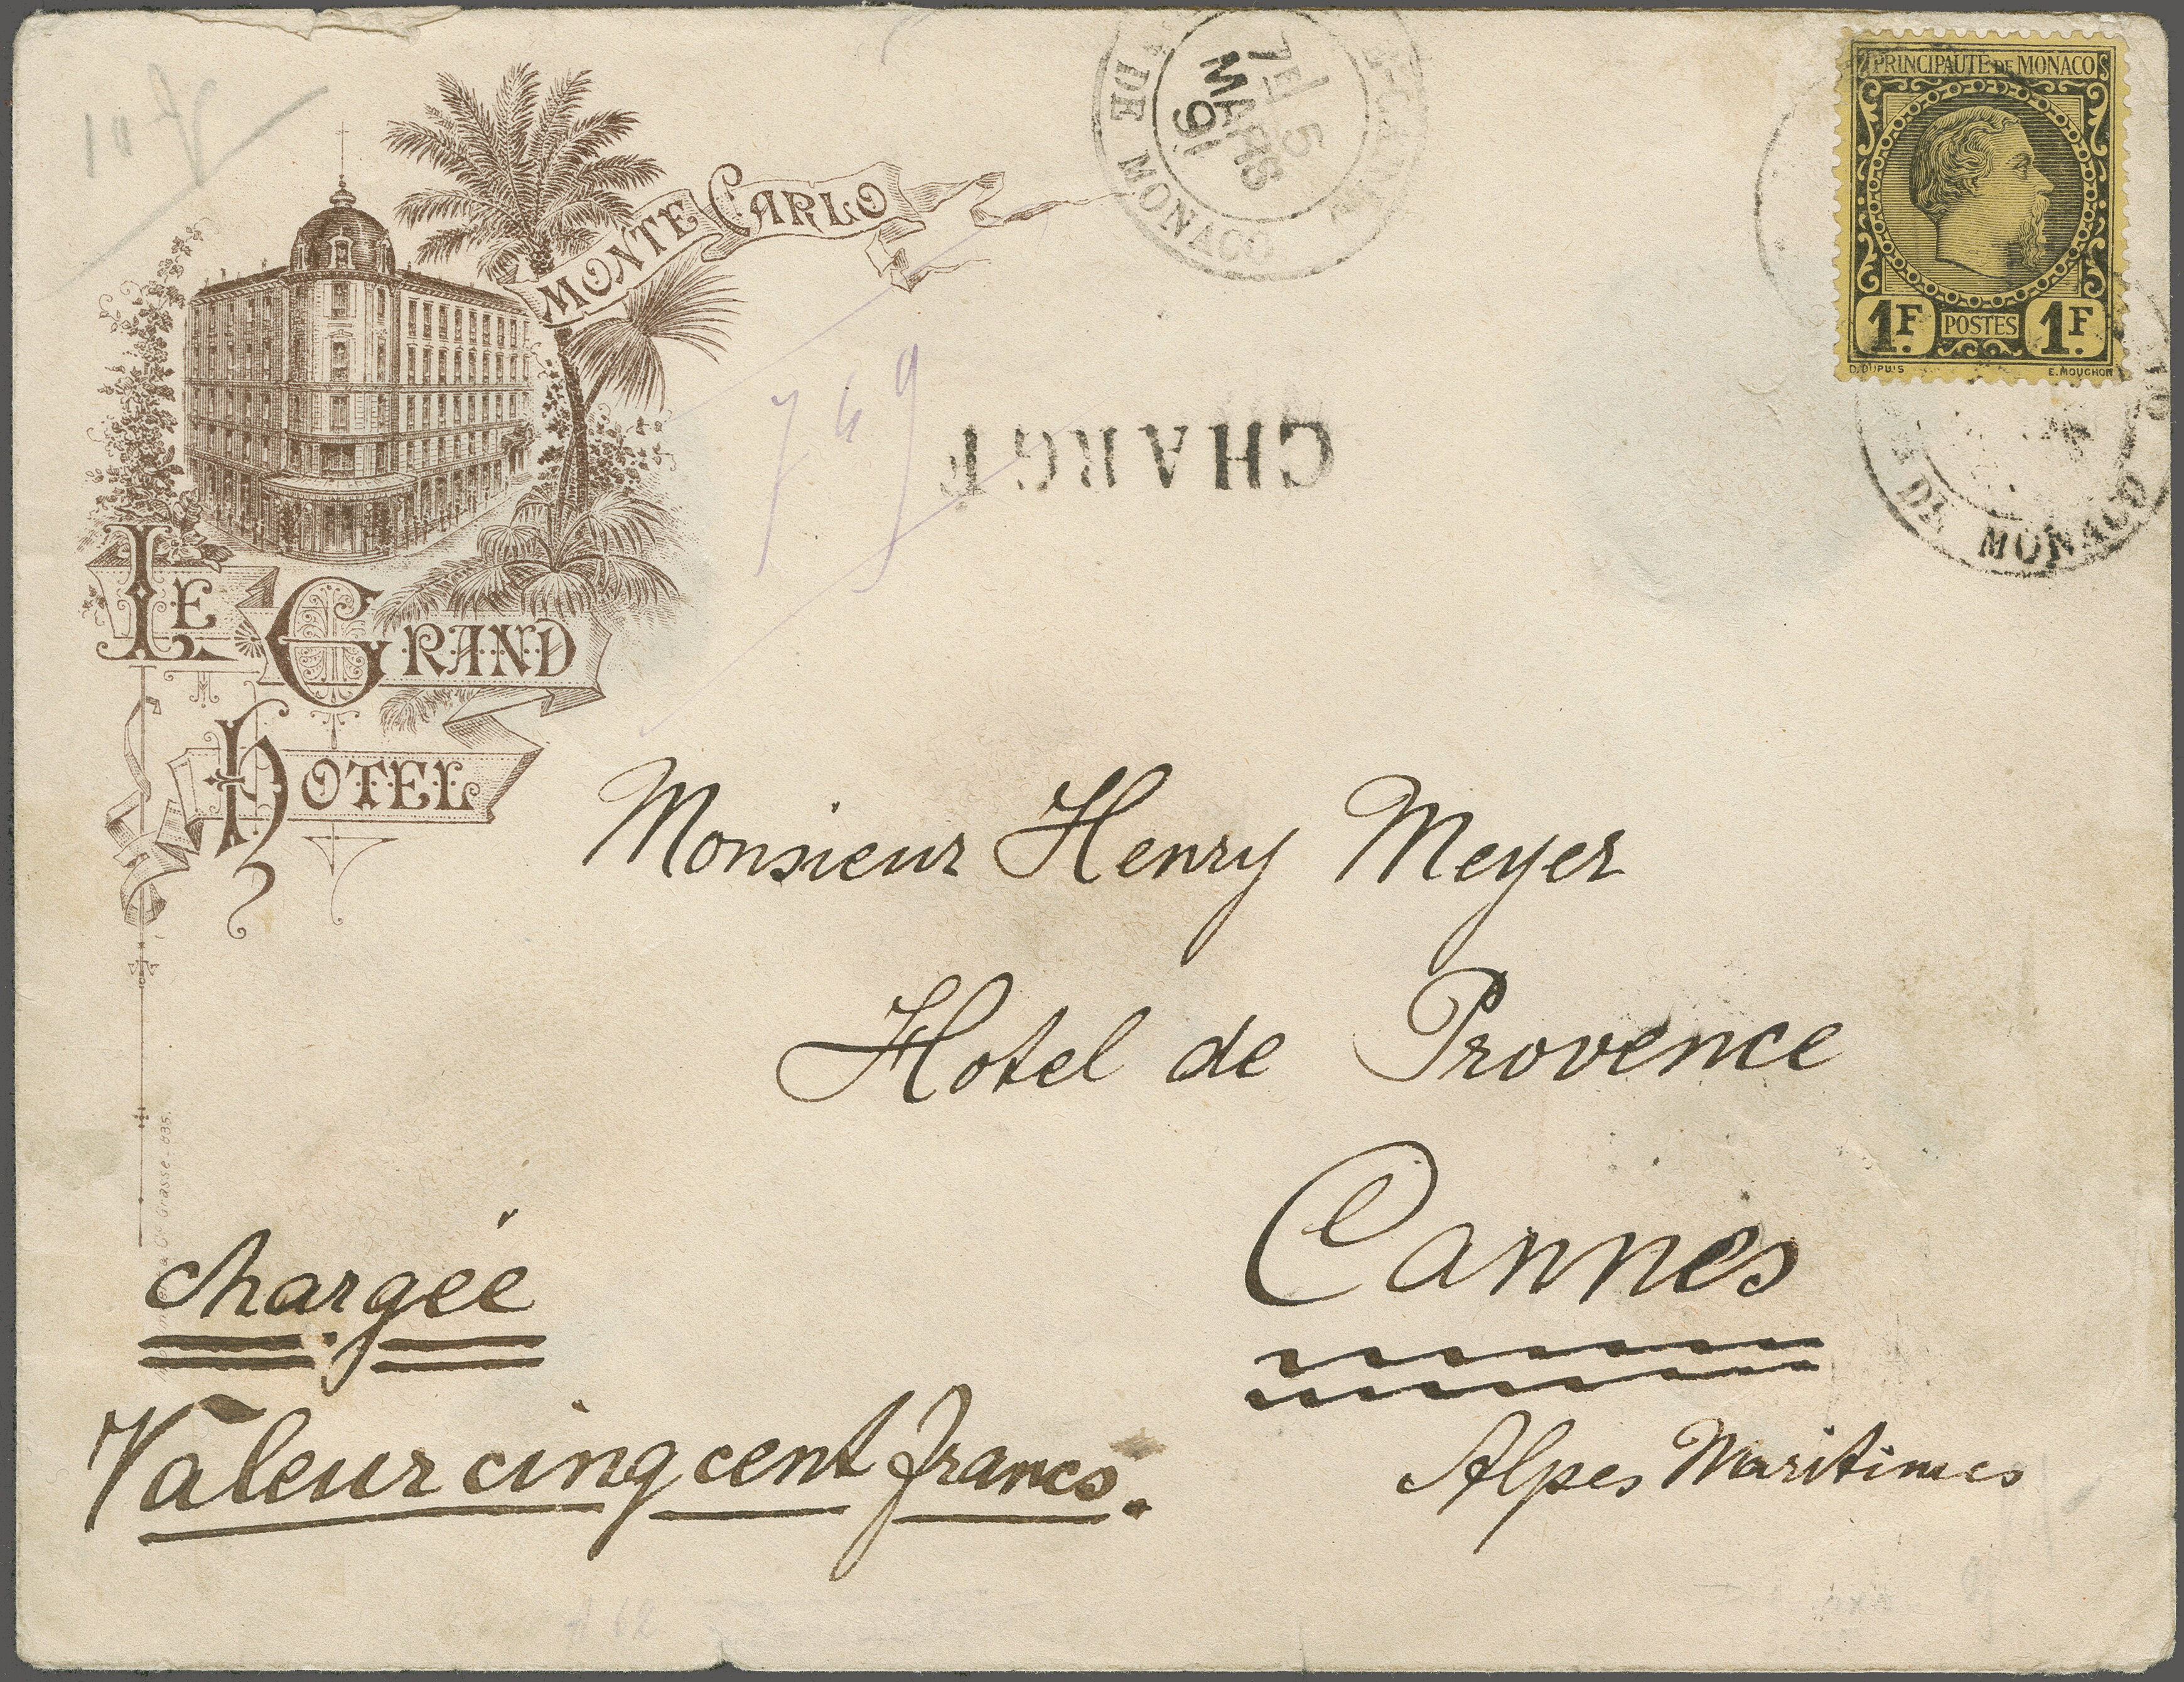 10 f
MONTE CARLO
7E/ 5
MARS
91
DE MONACO
PRINCIPAUTE DE MONACO
1F. POSTES 1F.
D. DUPUIS E. MOUCHON
DE MONACO
749
CHARGE
LE GRAND
HOTEL
Monsieur Henry Meyer
Hotel de Provence
Cannes
Alpes Maritimes
chargée
Valeur cinq cent francs.